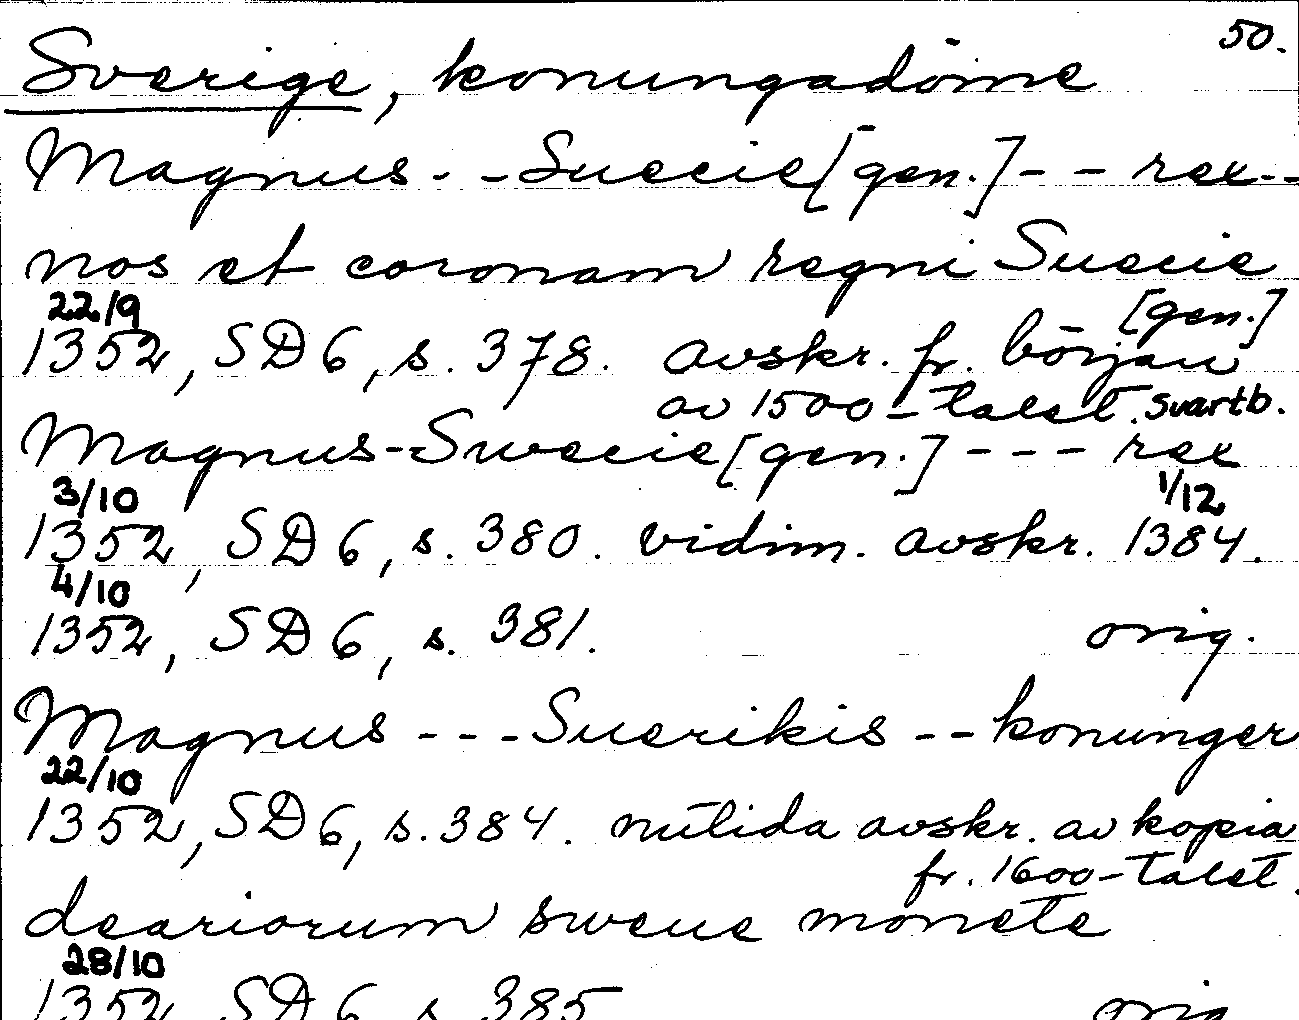 50.
Sverige, konungadöme
Magnus - - Suecie [gen.] - - rex - -
nos et coronam regni Suecie
[gen.]
22/9
1352, SD 6, s. 378. avskr. fr. början
av 1500-talet. svartb.
Magnus - Swecie [gen.] - - - rex
3/10 1/12
1352, SD 6, s. 380. vidim. avskr. 1384.
4/10
1352, SD 6, s. 381. orig.
Magnus - - - Suerikis - - konunger
22/10
1352, SD 6, s. 384. nutida avskr. av kopia
fr. 1600-talet.
deariorum sweue monete
28/10
1352, SD 6, s. 385 orig